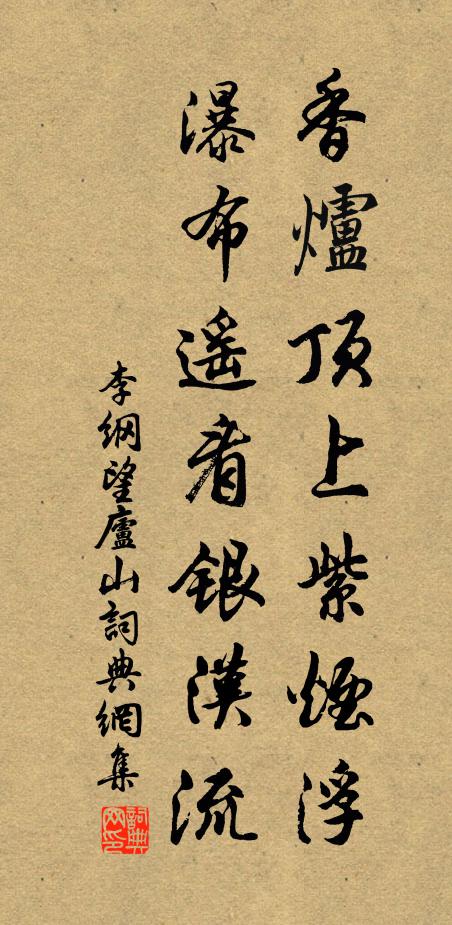 香爐頂上紫煙浮
瀑布遥看銀漢流
李綱望廬山詞典網集
詞典網印